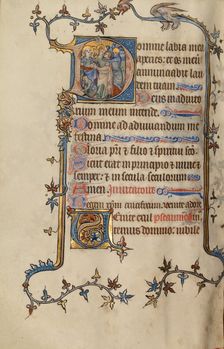 Domine labia mea
aperies: et os meum
annunciabit lau
dem tuam.
Deus in adiuto
rium meum intende.
Domine ad adiuvandum me
festina
Gloria patri & filio & spiritui sco
Sicut erat in principio & nunc &
semper: & in secula seculorum
Amen
Regem
Venite exul
temus domino: iubile